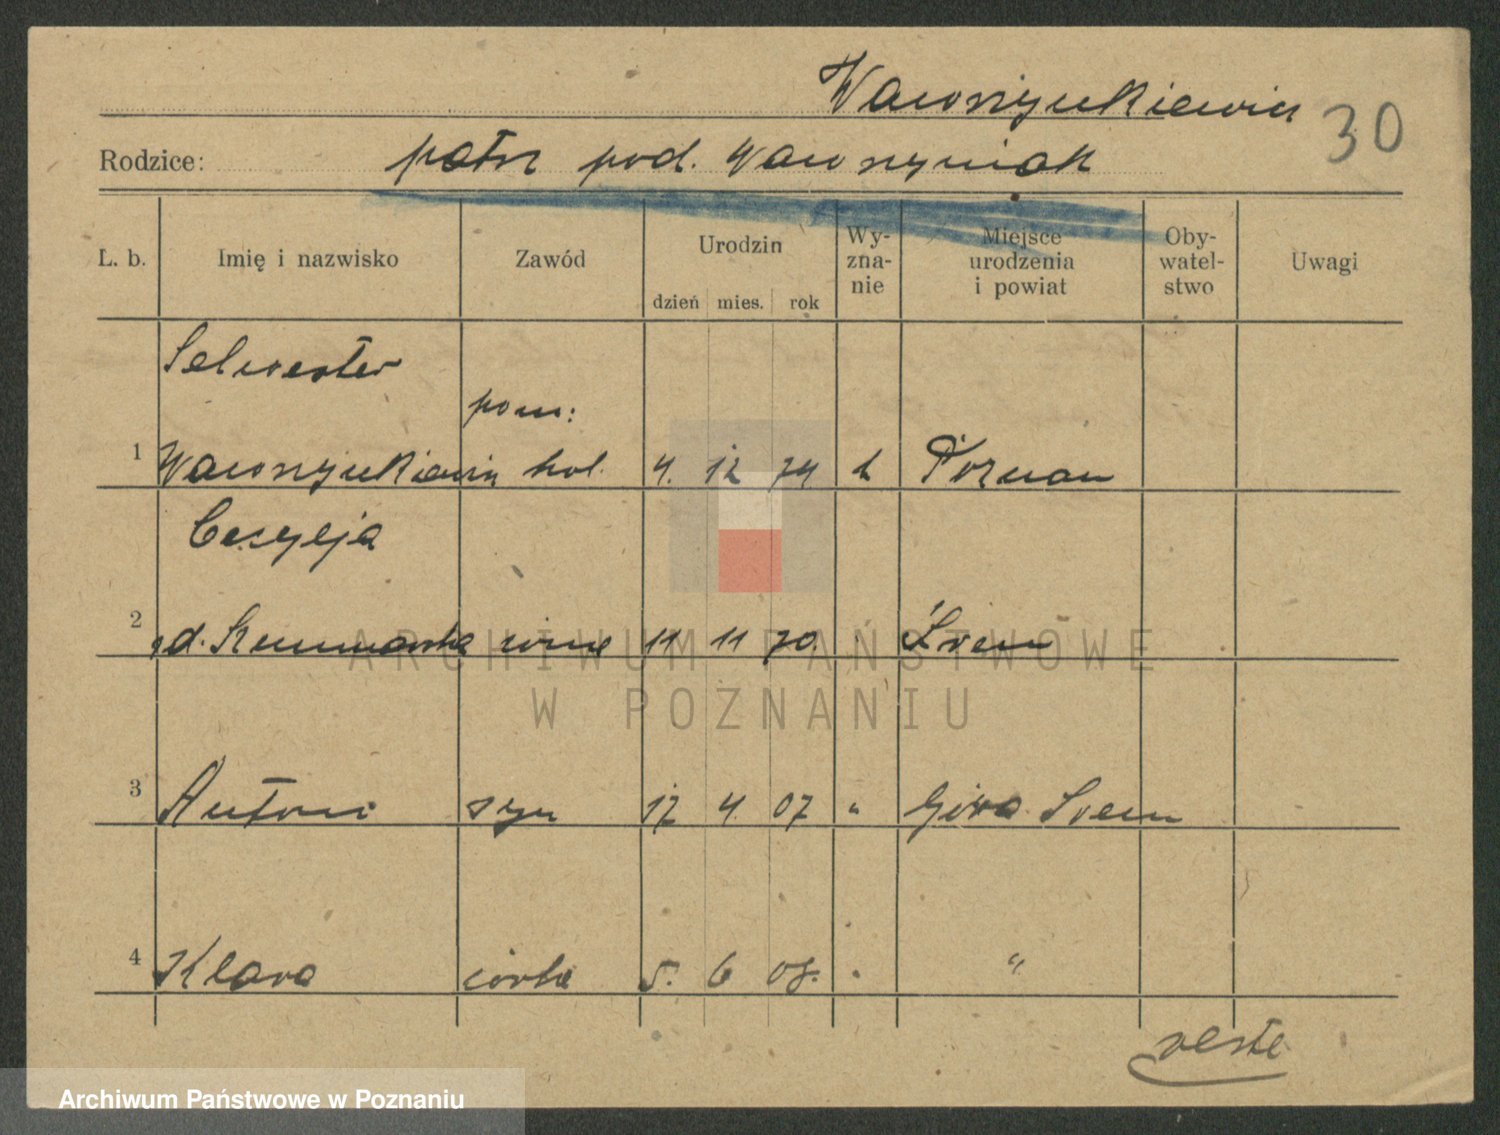 Wawrzynkiewicz 30
Rodzice: patrz pod. Wawrzyniak
L. b. Imię i nazwisko Zawód Urodzin dzień mies. rok Wy-zna-nie Miejsce urodzenia i powiat Oby-watel-stwo Uwagi
Selwester
pom:
1 Wawrzynkiewicz kol. 4. 12 74 k Poznan
Cesylja
2 żona 11 11 70. Śrem
3 Antoni syn 17 4. 07 " Góra Srem
4 Klara córka 5. 6 08. "
verte
ARCHIWUM PAŃSTWOWE
W POZNANIU
Archiwum Państwowe w Poznaniu